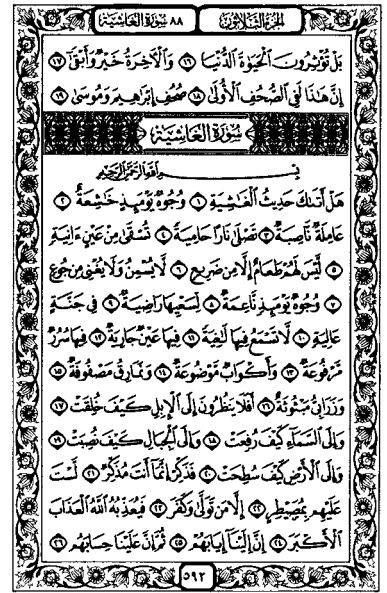 الجزء الثلاثون
٨٨ سورة الغاشية
بَلْ تُؤْثِرُونَ الْحَيَوٰةَ الدُّنْيَا ١٦ وَالْأَخِرَةُ خَيْرٌ وَأَبْقَىٰ ١٧
إِنَّ هَٰذَا لَفِى الصُّحُفِ الْأُولَىٰ ١٨ صُحُفِ إِبْرَٰهِيمَ وَمُوسَىٰ ١٩
سُورَةُ الغَاشِيَةِ
بِسْمِ اللَّهِ الرَّحْمَٰنِ الرَّحِيمِ
هَلْ أَتَىٰكَ حَدِيثُ الْغَٰشِيَةِ ١ وُجُوهٌ يَوْمَئِذٍ خَٰشِعَةٌ ٢
عَامِلَةٌ نَّاصِبَةٌ ٣ تَصْلَىٰ نَارًا حَامِيَةً ٤ تُسْقَىٰ مِنْ عَيْنٍ ءَانِيَةٍ
٥ لَّيْسَ لَهُمْ طَعَامٌ إِلَّا مِن ضَرِيعٍ ٦ لَّا يُسْمِنُ وَلَا يُغْنِى مِن جُوعٍ
٧ وُجُوهٌ يَوْمَئِذٍ نَّاعِمَةٌ ٨ لِّسَعْيِهَا رَاضِيَةٌ ٩ فِى جَنَّةٍ
عَالِيَةٍ ١٠ لَّا تَسْمَعُ فِيهَا لَٰغِيَةً ١١ فِيهَا عَيْنٌ جَارِيَةٌ ١٢ فِيهَا سُرُرٌ
مَّرْفُوعَةٌ ١٣ وَأَكْوَابٌ مَّوْضُوعَةٌ ١٤ وَنَمَارِقُ مَصْفُوفَةٌ ١٥
وَزَرَابِىُّ مَبْثُوثَةٌ ١٦ أَفَلَا يَنظُرُونَ إِلَى الْإِبِلِ كَيْفَ خُلِقَتْ ١٧
وَإِلَى السَّمَآءِ كَيْفَ رُفِعَتْ ١٨ وَإِلَى الْجِبَالِ كَيْفَ نُصِبَتْ ١٩
وَإِلَى الْأَرْضِ كَيْفَ سُطِحَتْ ٢٠ فَذَكِّرْ إِنَّمَآ أَنتَ مُذَكِّرٌ ٢١ لَّسْتَ
عَلَيْهِم بِمُصَيْطِرٍ ٢٢ إِلَّا مَن تَوَلَّىٰ وَكَفَرَ ٢٣ فَيُعَذِّبُهُ اللَّهُ الْعَذَابَ
الْأَكْبَرَ ٢٤ إِنَّ إِلَيْنَآ إِيَابَهُمْ ٢٥ ثُمَّ إِنَّ عَلَيْنَا حِسَابَهُم ٢٦
٥٩٢